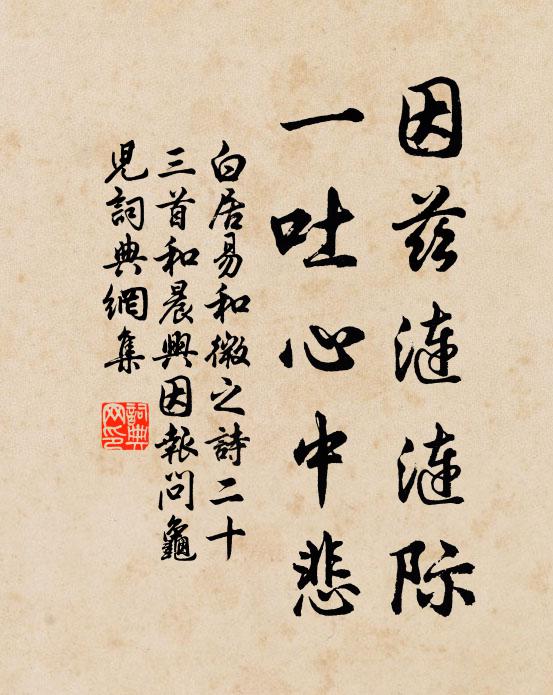 因兹漣漣际
一吐心中悲
白居易和微之詩二十
三首和晨興因報問龜
児詞典網集
詞典
网印